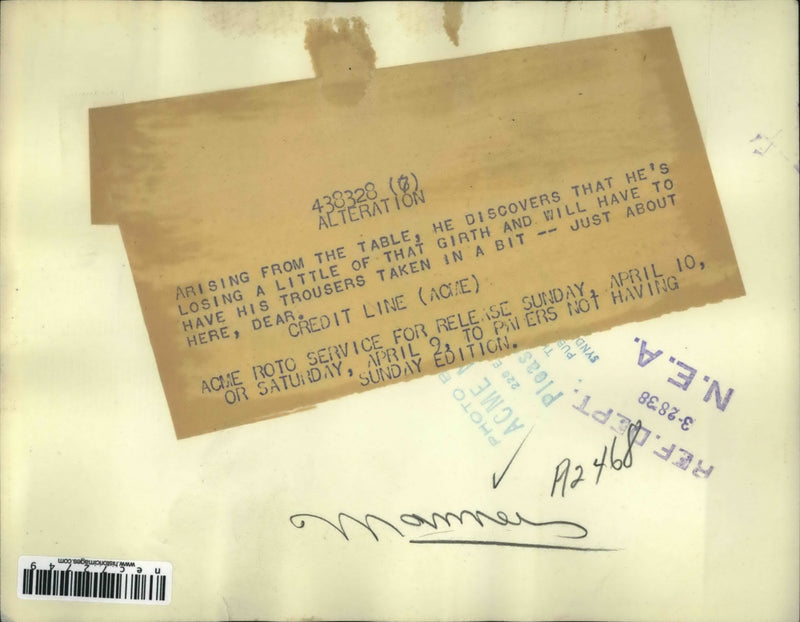 438328 (7)
ALTERATION
ARISING FROM THE TABLE, HE DISCOVERS THAT HE'S
LOSING A LITTLE OF THAT GIRTH AND WILL HAVE TO
HAVE HIS TROUSERS TAKEN IN A BIT -- JUST ABOUT
HERE, DEAR.
CREDIT LINE (ACME)
ACME ROTO SERVICE FOR RELEASE SUNDAY, APRIL 10,
OR SATURDAY, APRIL 9, TO PAPERS NOT HAVING
SUNDAY EDITION.
PHOTO B
ACME N
220 E
Pleas
SYND
N.E.A.
3-28-38
REF. DEPT.
A2468
Manners
www.historicimages.com